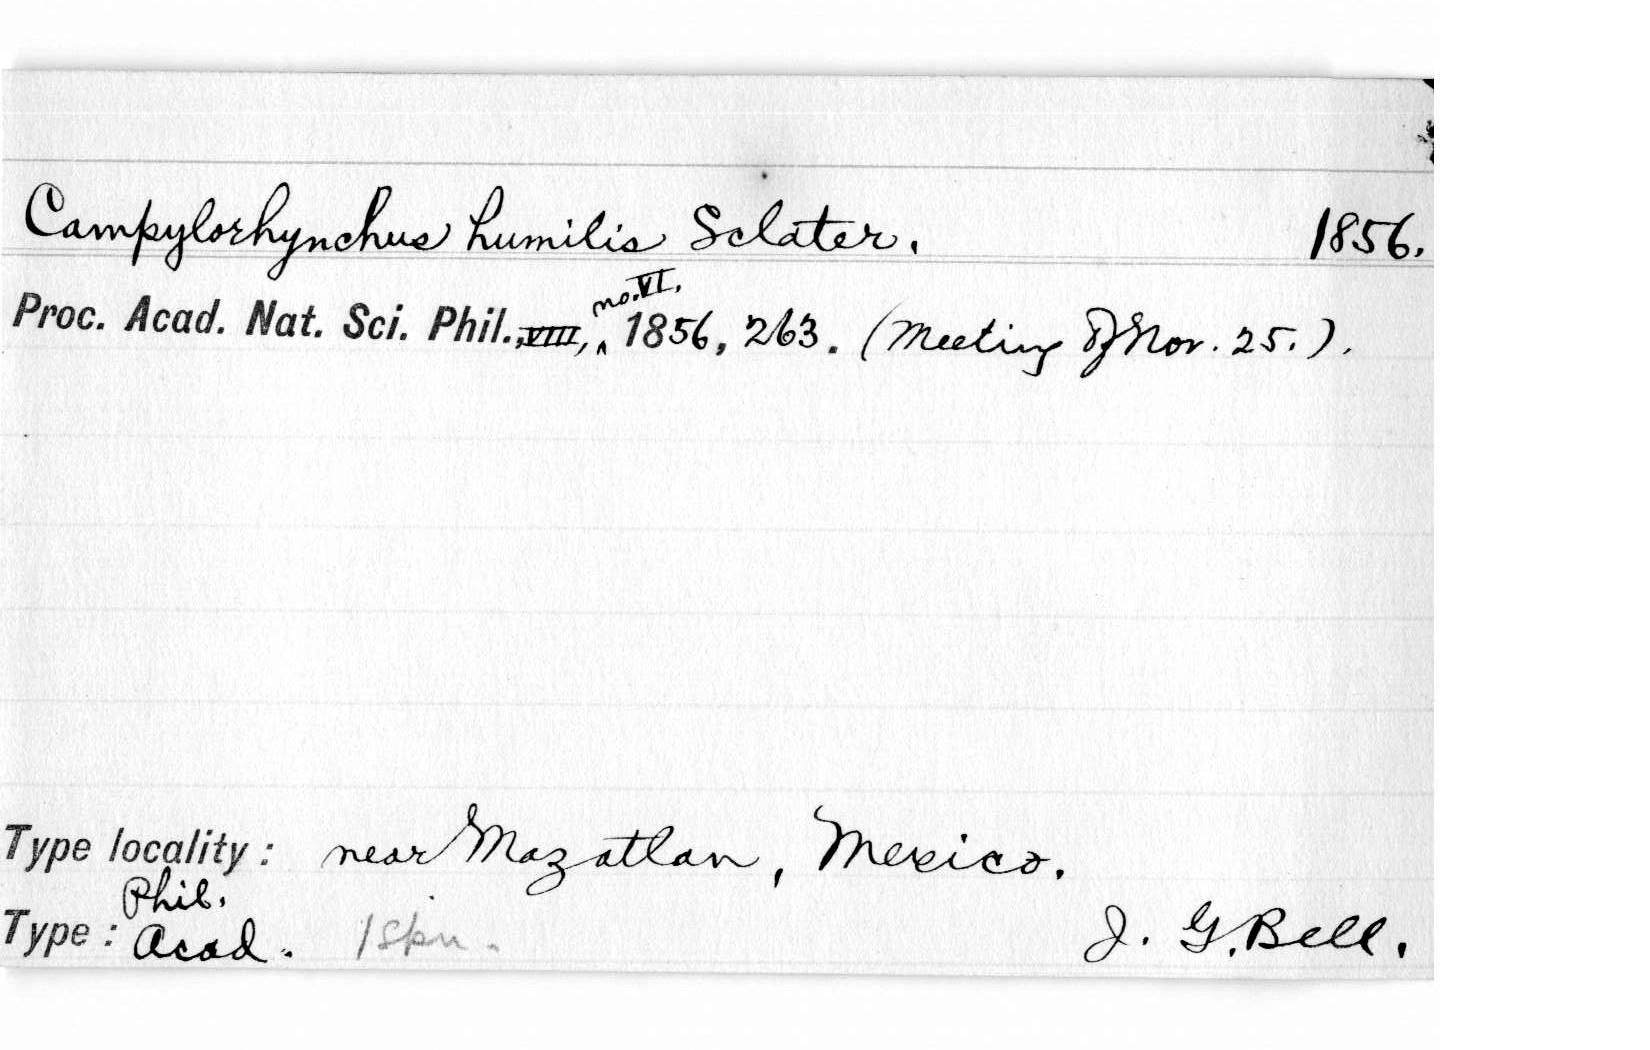 Campylorhynchus humilis Sclater. 1856.
no. VI.
Proc. Acad. Nat. Sci. Phil., VIII, ‸ 1856, 263. (Meeting of Nov. 25.).
Type locality: near Mazatlan, Mexico.
Phil.
Type: Acad. 1 spn. J. G. Bell.